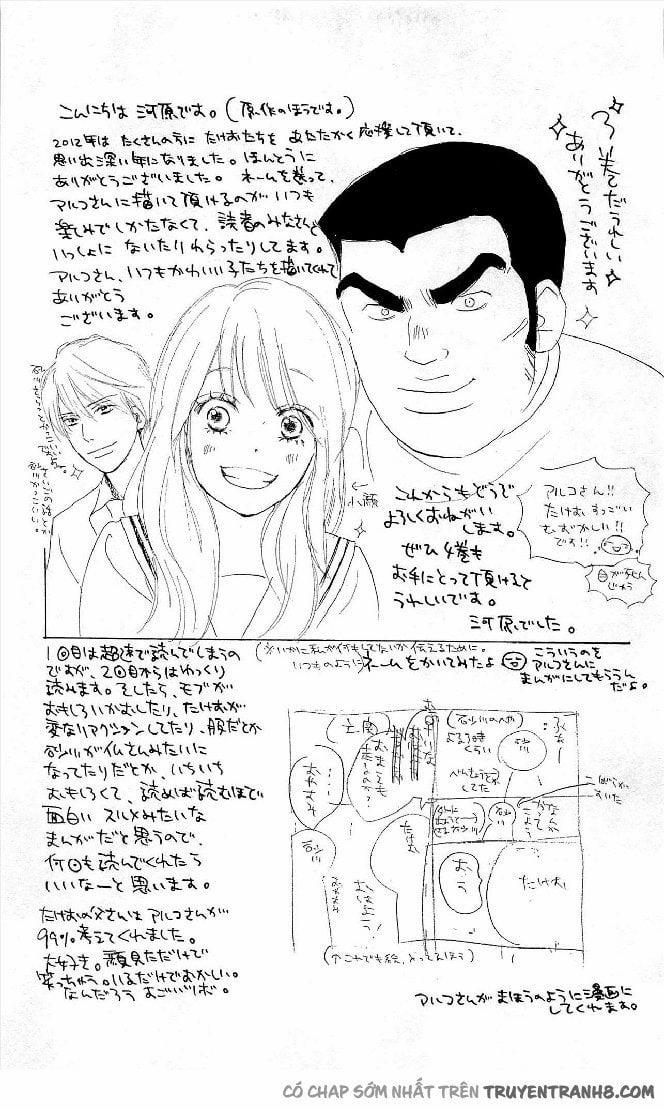 こんにちは 河原です。(原作のほうです。)
2012年は たくさんの方に たけおたちを あたたかく 応援して頂いて、
思い出深い年になりました。ほんとうに
ありがとうございました。 ネームを送って、
アルコさんに描いて頂けるのが いつも
楽しみでしかたなくて、読者のみなさんと
いっしょに ないたりわらったりしてます。
アルコさん、いつもかわいい子たちを描いてくれて
ありがとう
ございます。
3巻でだうれしい
ありがとう
ございます
←
小顔
これからもどうぞ
よろしくおねがい
します。
ぜひ4巻も
お手にとって頂けると
うれしいです。
河原でした。
アルコさん!!
たけお すっごい
むずかしい!!
です!!
1回目は超速で読んでしまうの
ですが、2回目からはゆっくり
読みます。そしたら、モブが
おもしろいかおしたり、たけおが
変なリアクションしてたり、服だとか
砂川がイムさんみたいに
なってたりだとか、いちいち
おもしろくて、読めば読むほど
面白い スルメみたいな
まんがだと思うので、
何回も読んでくれたら
いいなーと思います。
たけおの父さんは アルコさんが
99%考えてくれました。
大好き。顔見ただけで
笑っちゃう。いるだけでおかしい。
なんだろう あごいいば。
いつものように ネームをかいてみたよ
こういうのを
アルコさんに
まんがにしてもらうん
だよ。
砂川のへや
よる9時
くらい
砂川
べんきょうを
してた
たけお
おう
たけお
おはよう!
砂川
おやすみ
(↑これでも絵、とってえほう)
アルコさんが まほうのように漫画に
してくれます。
CÓ CHAP SỚM NHẤT TRÊN TRUYENTRANH8.COM